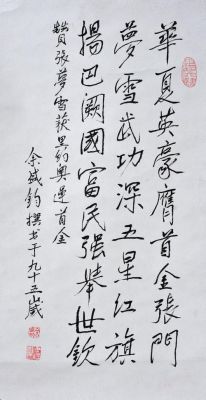 華夏英豪膺首金張門
夢雪武功深五星红旗
揚巴闕國富民强舉世欽
贊張夢雪获里约奥運首金
余盛鈞撰书于九十五歲